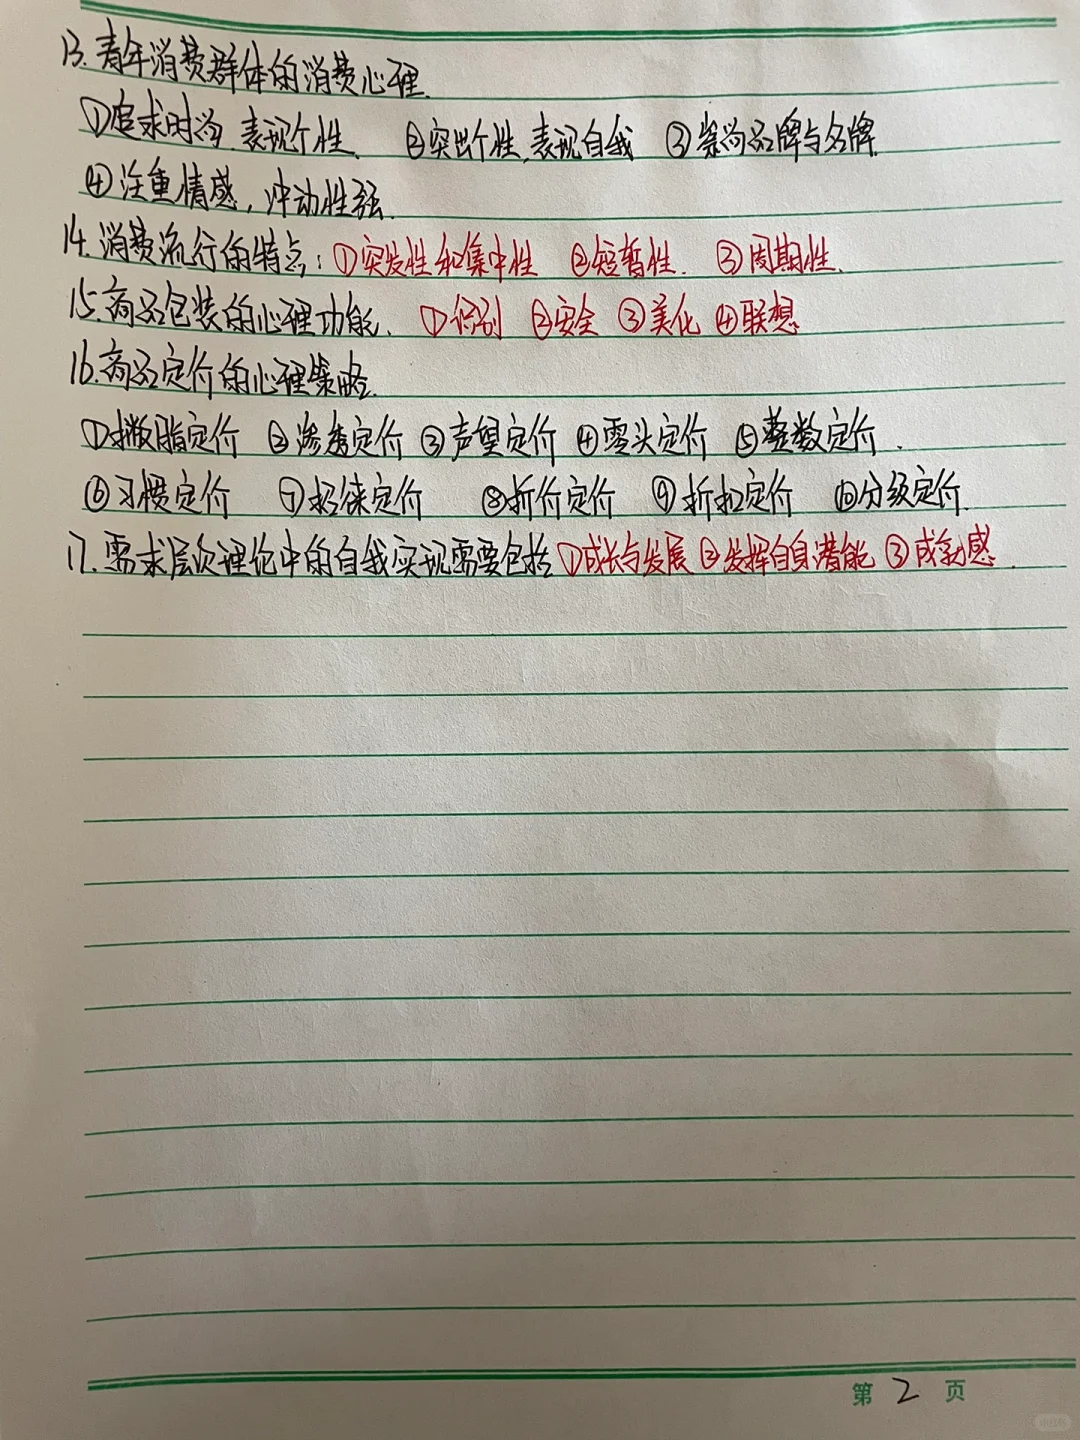 13. 青年消费群体的消费心理.
①追求时尚, 表现个性. ②突出个性, 表现自我 ③崇尚品牌与名牌.
④注重情感, 冲动性强.
14. 消费流行的特点: ①突发性和集中性 ②短暂性. ③周期性.
15. 商品包装的心理功能. ①识别 ②安全 ③美化 ④联想
16. 商品定价的心理策略.
①撇脂定价 ②渗透定价 ③声望定价 ④零头定价 ⑤整数定价.
⑥习惯定价 ⑦招徕定价 ⑧折价定价 ⑨折扣定价 ⑩分级定价.
17. 需求层次理论中的自我实现需要包括 ①成长与发展 ②发挥自身潜能 ③成就感.
第 2 页